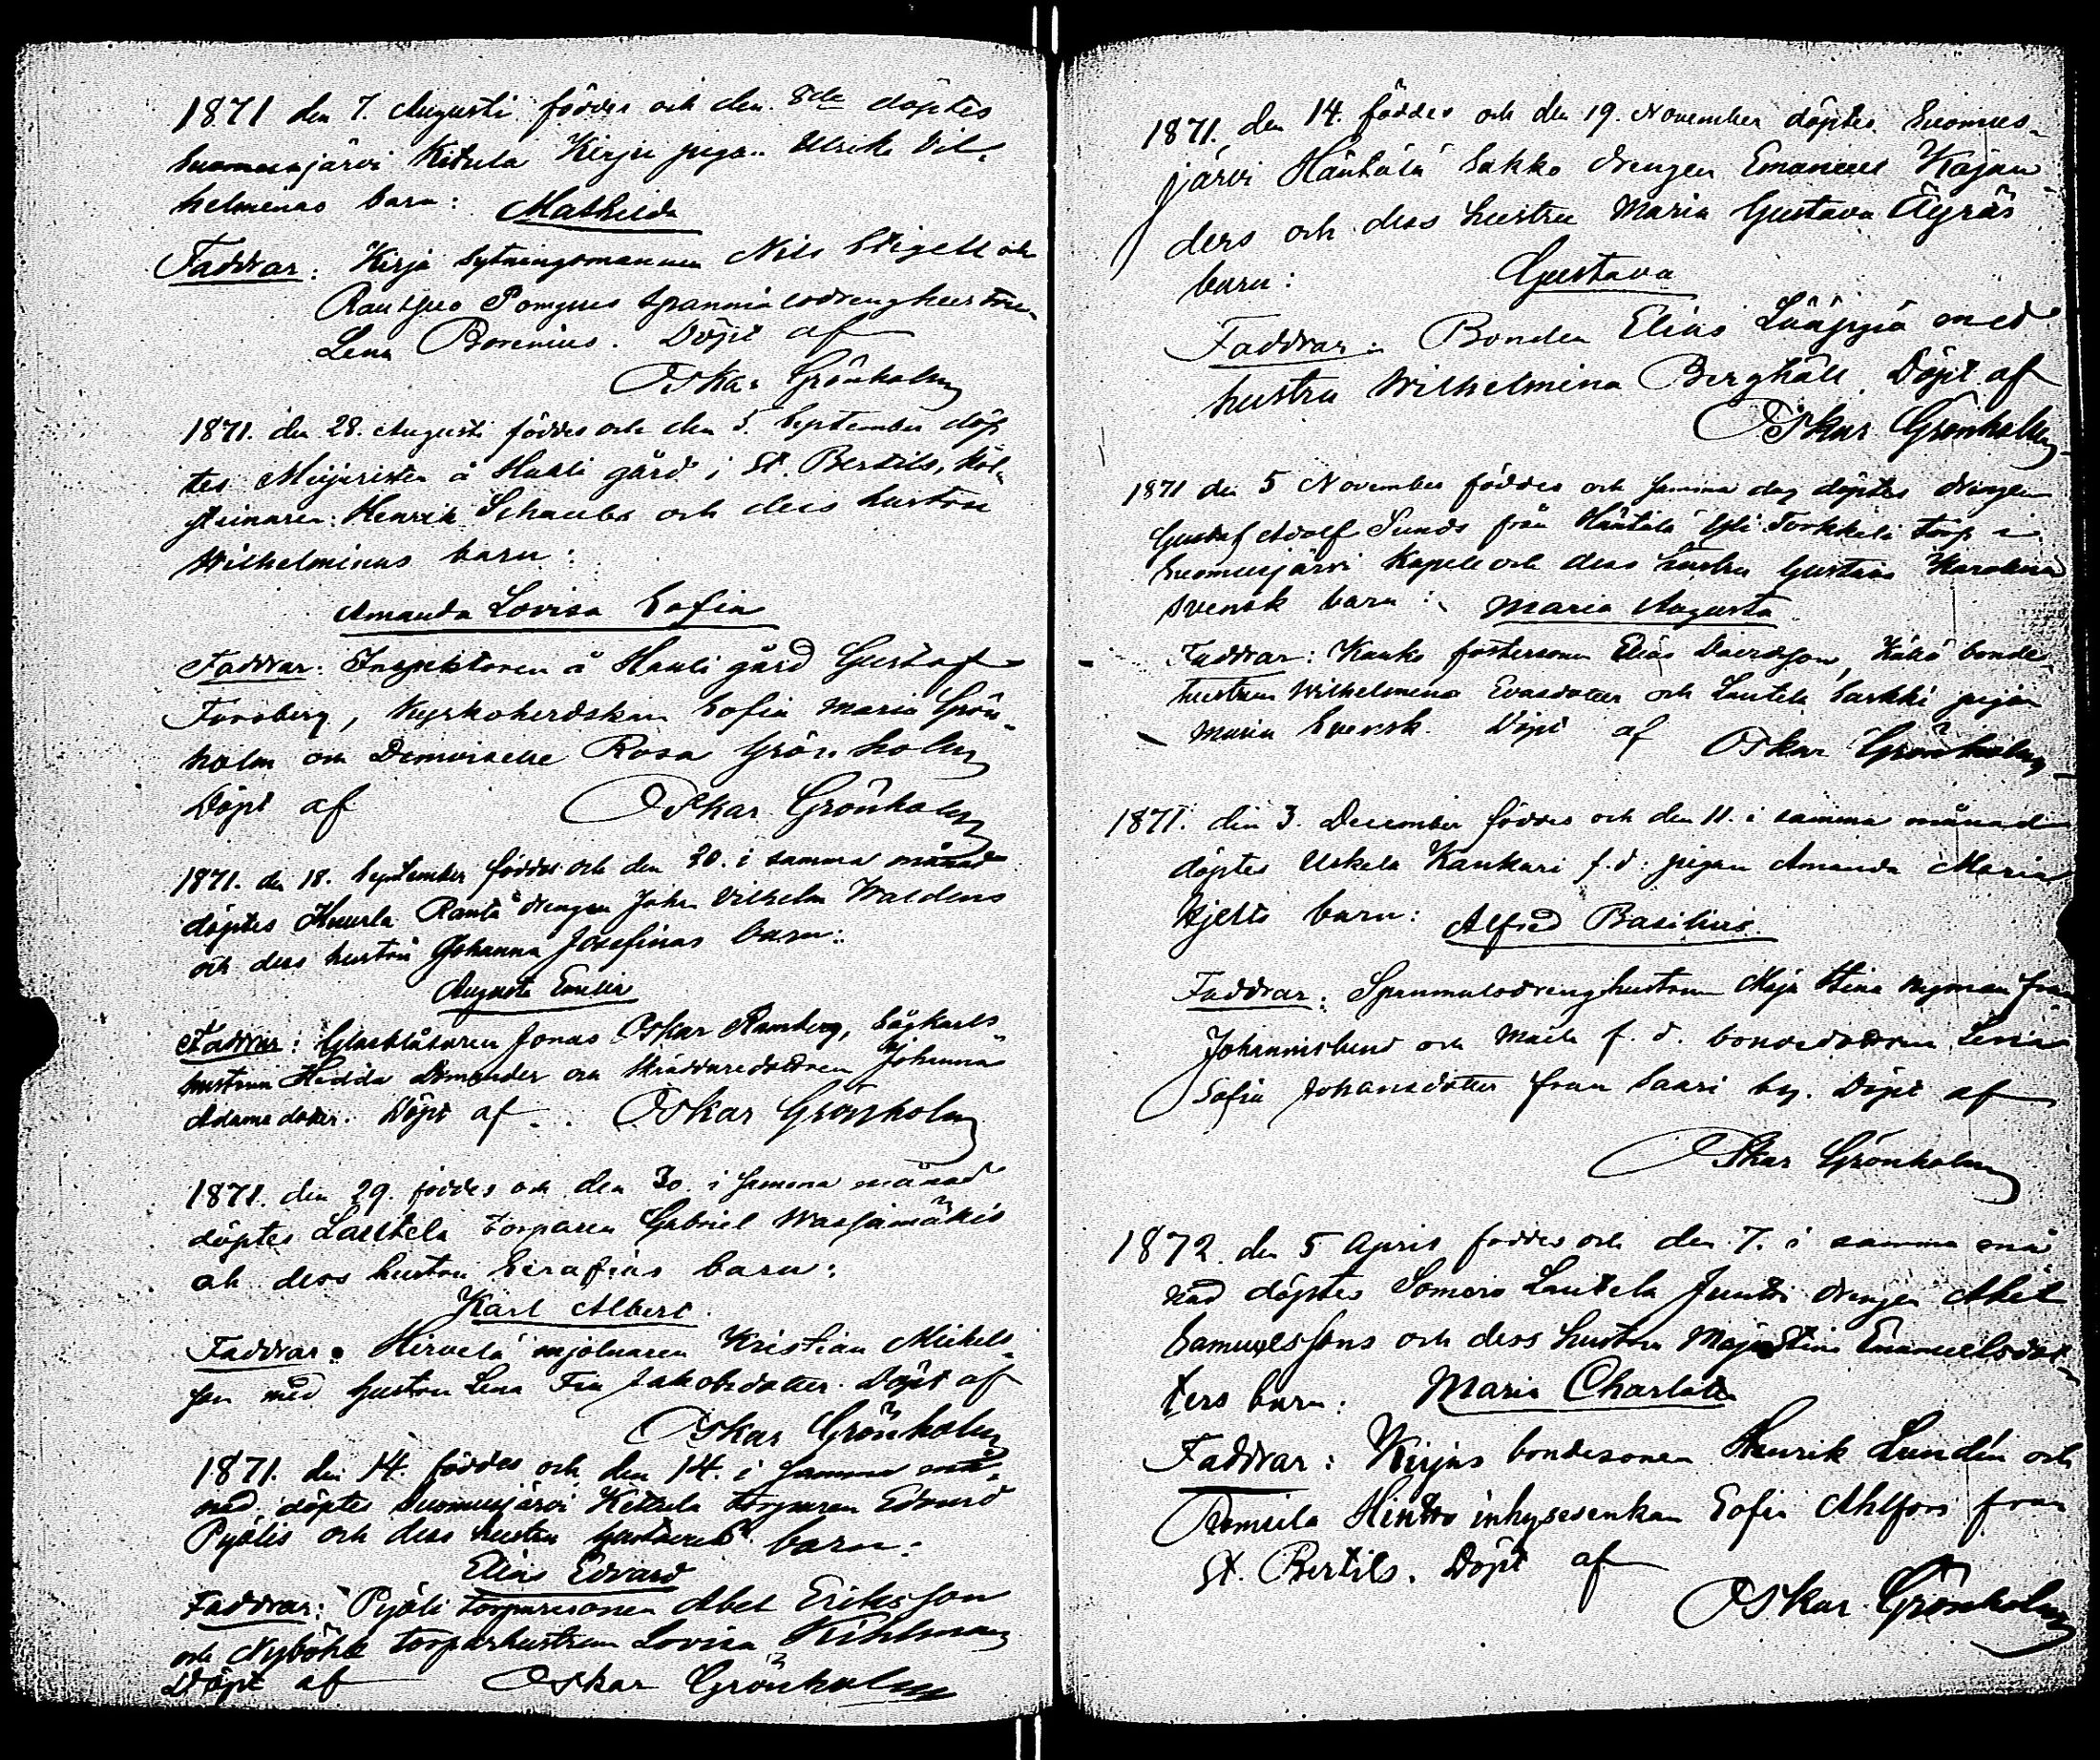 1871 den 7. Augusti föddes och den 8de döptes
Suomusjärvi Kitula Kirju pigan Ulrika Vil-
helminas barn: Mathilda
Faddrar: Kirju Sytningsmannen Nils Stigell och
Spanmålsdrenghustrun
Lena Borenius. Döpt af
Oskar Grönholm
1871. den 28. Augusti föddes och den 5. September döp
tes Mejeristen å Haali gård i St. Bertils, Hol-
steinaren: Henrik Schaubs och dess hustru
Wilhelminas barn:
Amanda Lovisa Sofia
Faddrar: Inspektoren å Haali gård Gustaf
Forsberg, Kyrkoherdskan Sofia Maria Grön-
holm och Demoiselle Rosa Grönholm
Döpt af Oskar Grönholm
1871. den 18. September föddes och den 20. i samma månad
döptes Kuurla Ranta drengen Johan Vilhelm Waldens
och dess hustru Johanna Josefinas barn:
Augusta Emilia
Faddrar: Glasblåsaren Jonas Oskar Ramberg, Sågkarls-
hustrun Hedda Domander och Skräddaredottren Johanna
Adamsdotter. Döpt af Oskar Grönholm
1871. den 29. föddes och den 30. i samma månad
döptes Lautela torparen Gabriel Wassamäkis
och dess hustru Serafias barn:
Karl Albert.
Faddrar: Hirvelä mjölnaren Kristian Mickels-
son med hustru Lena Fia Jakobsdotter. Döpt af
Oskar Grönholm
1871. den 14. föddes och den 14. i samma må-
nad döptes Suomusjärvi Kettula torparen Edvard
Pyölis och dess hustru barn:
Elias Edvard
Faddrar: Pyöli torparesonen Abel Eriksson
och Nyböhle torparhustrun Lovisa Kihlman
Döpt af Oskar Grönholm
1871. den 14. föddes och den 19. November döptes Suomus-
järvi Häntälä Sakko drengen Emanuel Kajan
ders och dess hustru Maria Gustava Äyräs
barn: Gustava
Faddrar: Bonden Elias Lääpyiä med
hustru Wilhelmina Berghäll. Döpt af
Oskar Grönholm
1871 den 5 November föddes och samma dag döptes drengen
Gustaf Adolf Sunds från Häntälä Yli Torkkeli torp i
Suomusjärvi Kapell och dess hustru Gustava Karolina
Svensk barn: Maria Augusta
Faddrar: Kauko fostersonen Elias Davidsson, bonde-
hustrun Wilhelmina Evasdotter och Lautela Sarkki pigan
Maria Svensk. Döpt af Oskar Grönholm
1871. den 3. December föddes och den 11. i samma månad
döptes Uskela Kankari f.d. pigan Amanda Maria
barn: Alfred Basilius.
Faddrar: Spanmålsdrenghustrun Maja Stina Nyman från
Johannislund och f.d. bondedottren Lena
Sofia Johansdotter från Saari by. Döpt af
Oskar Grönholm
1872. den 5 April föddes och den 7. i samma må
nad döptes Somero Lautela Juntti drengen Abel
Samuelssons och dess hustru Maja Stina Emanuelsdot-
ters barn: Maria Charlotta
Faddrar: Kirjus bondesonen Henrik Lundén och
Romsila Hinttu inhysesenkan Sofia Ahlfors från
St. Bertils. Döpt af
Oskar Grönholm